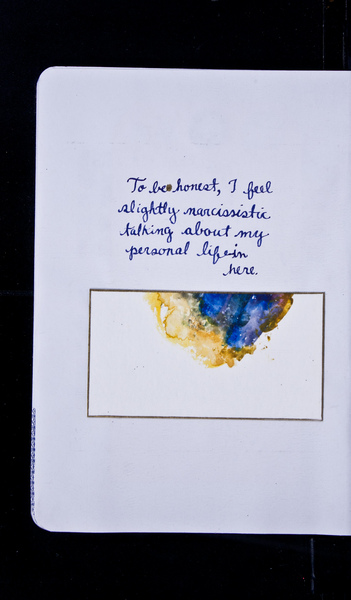 To be honest, I feel
slightly narcissistic
talking about my
personal life in
here.